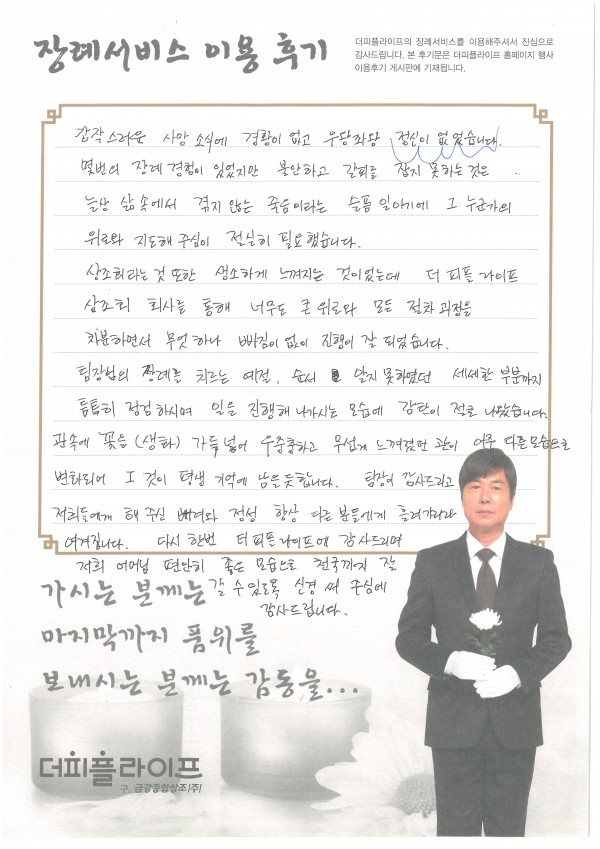 장례서비스 이용 후기
더피플라이프의 장례서비스를 이용해주셔서 진심으로
감사드립니다. 본 후기문은 더피플라이프 홈페이지 행사
이용후기 게시판에 기재됩니다.
갑작스러운 사망 소식에 경황이 없고 우왕좌왕 정신이 없었습니다.
몇번의 장례 경험이 있었지만 불안하고 갈피를 잡지 못하는것은
늘상 삶속에서 겪지 않는 죽음이라는 슬픔 일아기에 그 누군가의
위로와 지도해 주심이 절실히 필요했습니다.
상조회라는것 또한 생소하게 느껴지는 것이었는데 더 피플 라이프
상조회 회사를 통해 너무도 큰 위로와 모든 절차 과정을
차분하면서 무엇 하나 빠짐이 없이 진행이 잘 되었습니다.
팀장님의 장례를 치르는 예절, 순서 알지 못하였던 세세한 부분까지
틈틈히 점검 하시며 일을 진행해 나가시는 모습에 감탄이 절로 나왔습니다.
관속에 꽃을 (생화) 가득 넣어 우중충하고 무섭게 느껴졌던 관이 아주 다른 모습으로
변화되어 그것이 평생 기억에 남을듯합니다. 팀장님 감사드리고
저희들에게 해 주신 배려와 정성 항상 다른 분들에게 흘러가리라
여겨집니다. 다시 한번 더 피플 라이프에 감사드리며
저희 어머님 편안히 좋은 모습으로 천국까지 잘
갈 수 있도록 신경 써 주심에
감사드립니다.
가시는 분께는
마지막까지 품위를
보내시는 분께는 감동을...
더피플라이프
구. 금강종합상조(주)